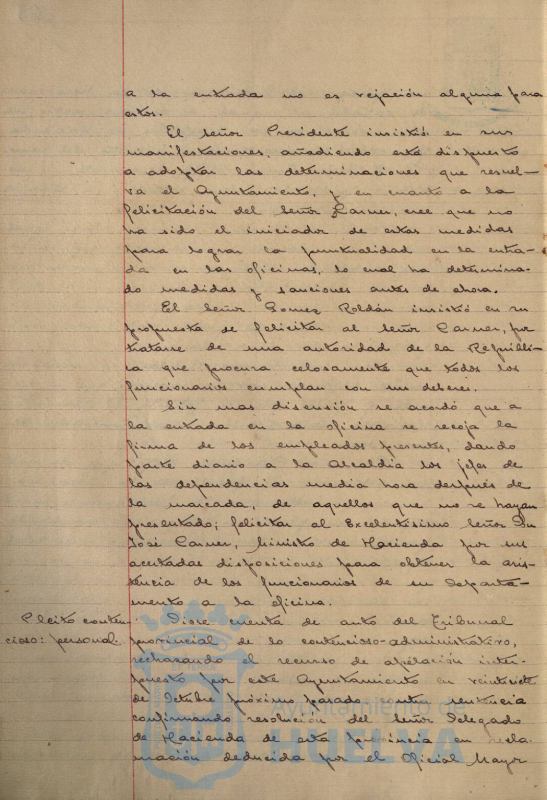 a la entrada no es vejación alguna para
estos.
El señor Presidente insistió en sus
manifestaciones, añadiendo está dispuesto
a adoptar las determinaciones que resuel-
va el Ayuntamiento, y en cuanto a la
felicitación del Señor Carner, cree que no
ha sido el iniciador de estas medidas
para lograr la puntualidad en la entra-
da en las oficinas, lo cual ha determina-
do medidas y sanciones antes de ahora.
El Señor Gomez Roldán insistió en su
propuesta de felicitar al señor Carner, por
tratarse de una autoridad de la Repúbli-
ca que procura celosamente que todos los
funcionarios cumplan con sus deberes.
Sin mas discusión se acordó que a
la entrada en la oficina se recoja la
firma de los empleados presentes, dando
parte diario a la Alcaldía los jefes de
las dependencias media hora después de
la marcada, de aquellos que no se hayan
presentado; felicitar al Excelentísimo Señor Dn
José Carner, Ministro de Hacienda por sus
acertadas disposiciones para obtener la asis-
tencia de los funcionarios de su Departa-
mento a la oficina.
Pleito conten-
cioso: personal.
Diose cuenta de auto del Tribunal
provincial de lo contencioso-administrativo,
rechazando el recurso de apelación inter-
puesto por este Ayuntamiento en veintisiete
de Octubre próximo pasado contra sentencia
confirmando resolución del señor Delegado
de Hacienda de esta provincia en recla-
mación deducida por el Oficial Mayor
Ayuntamiento de
HUELVA